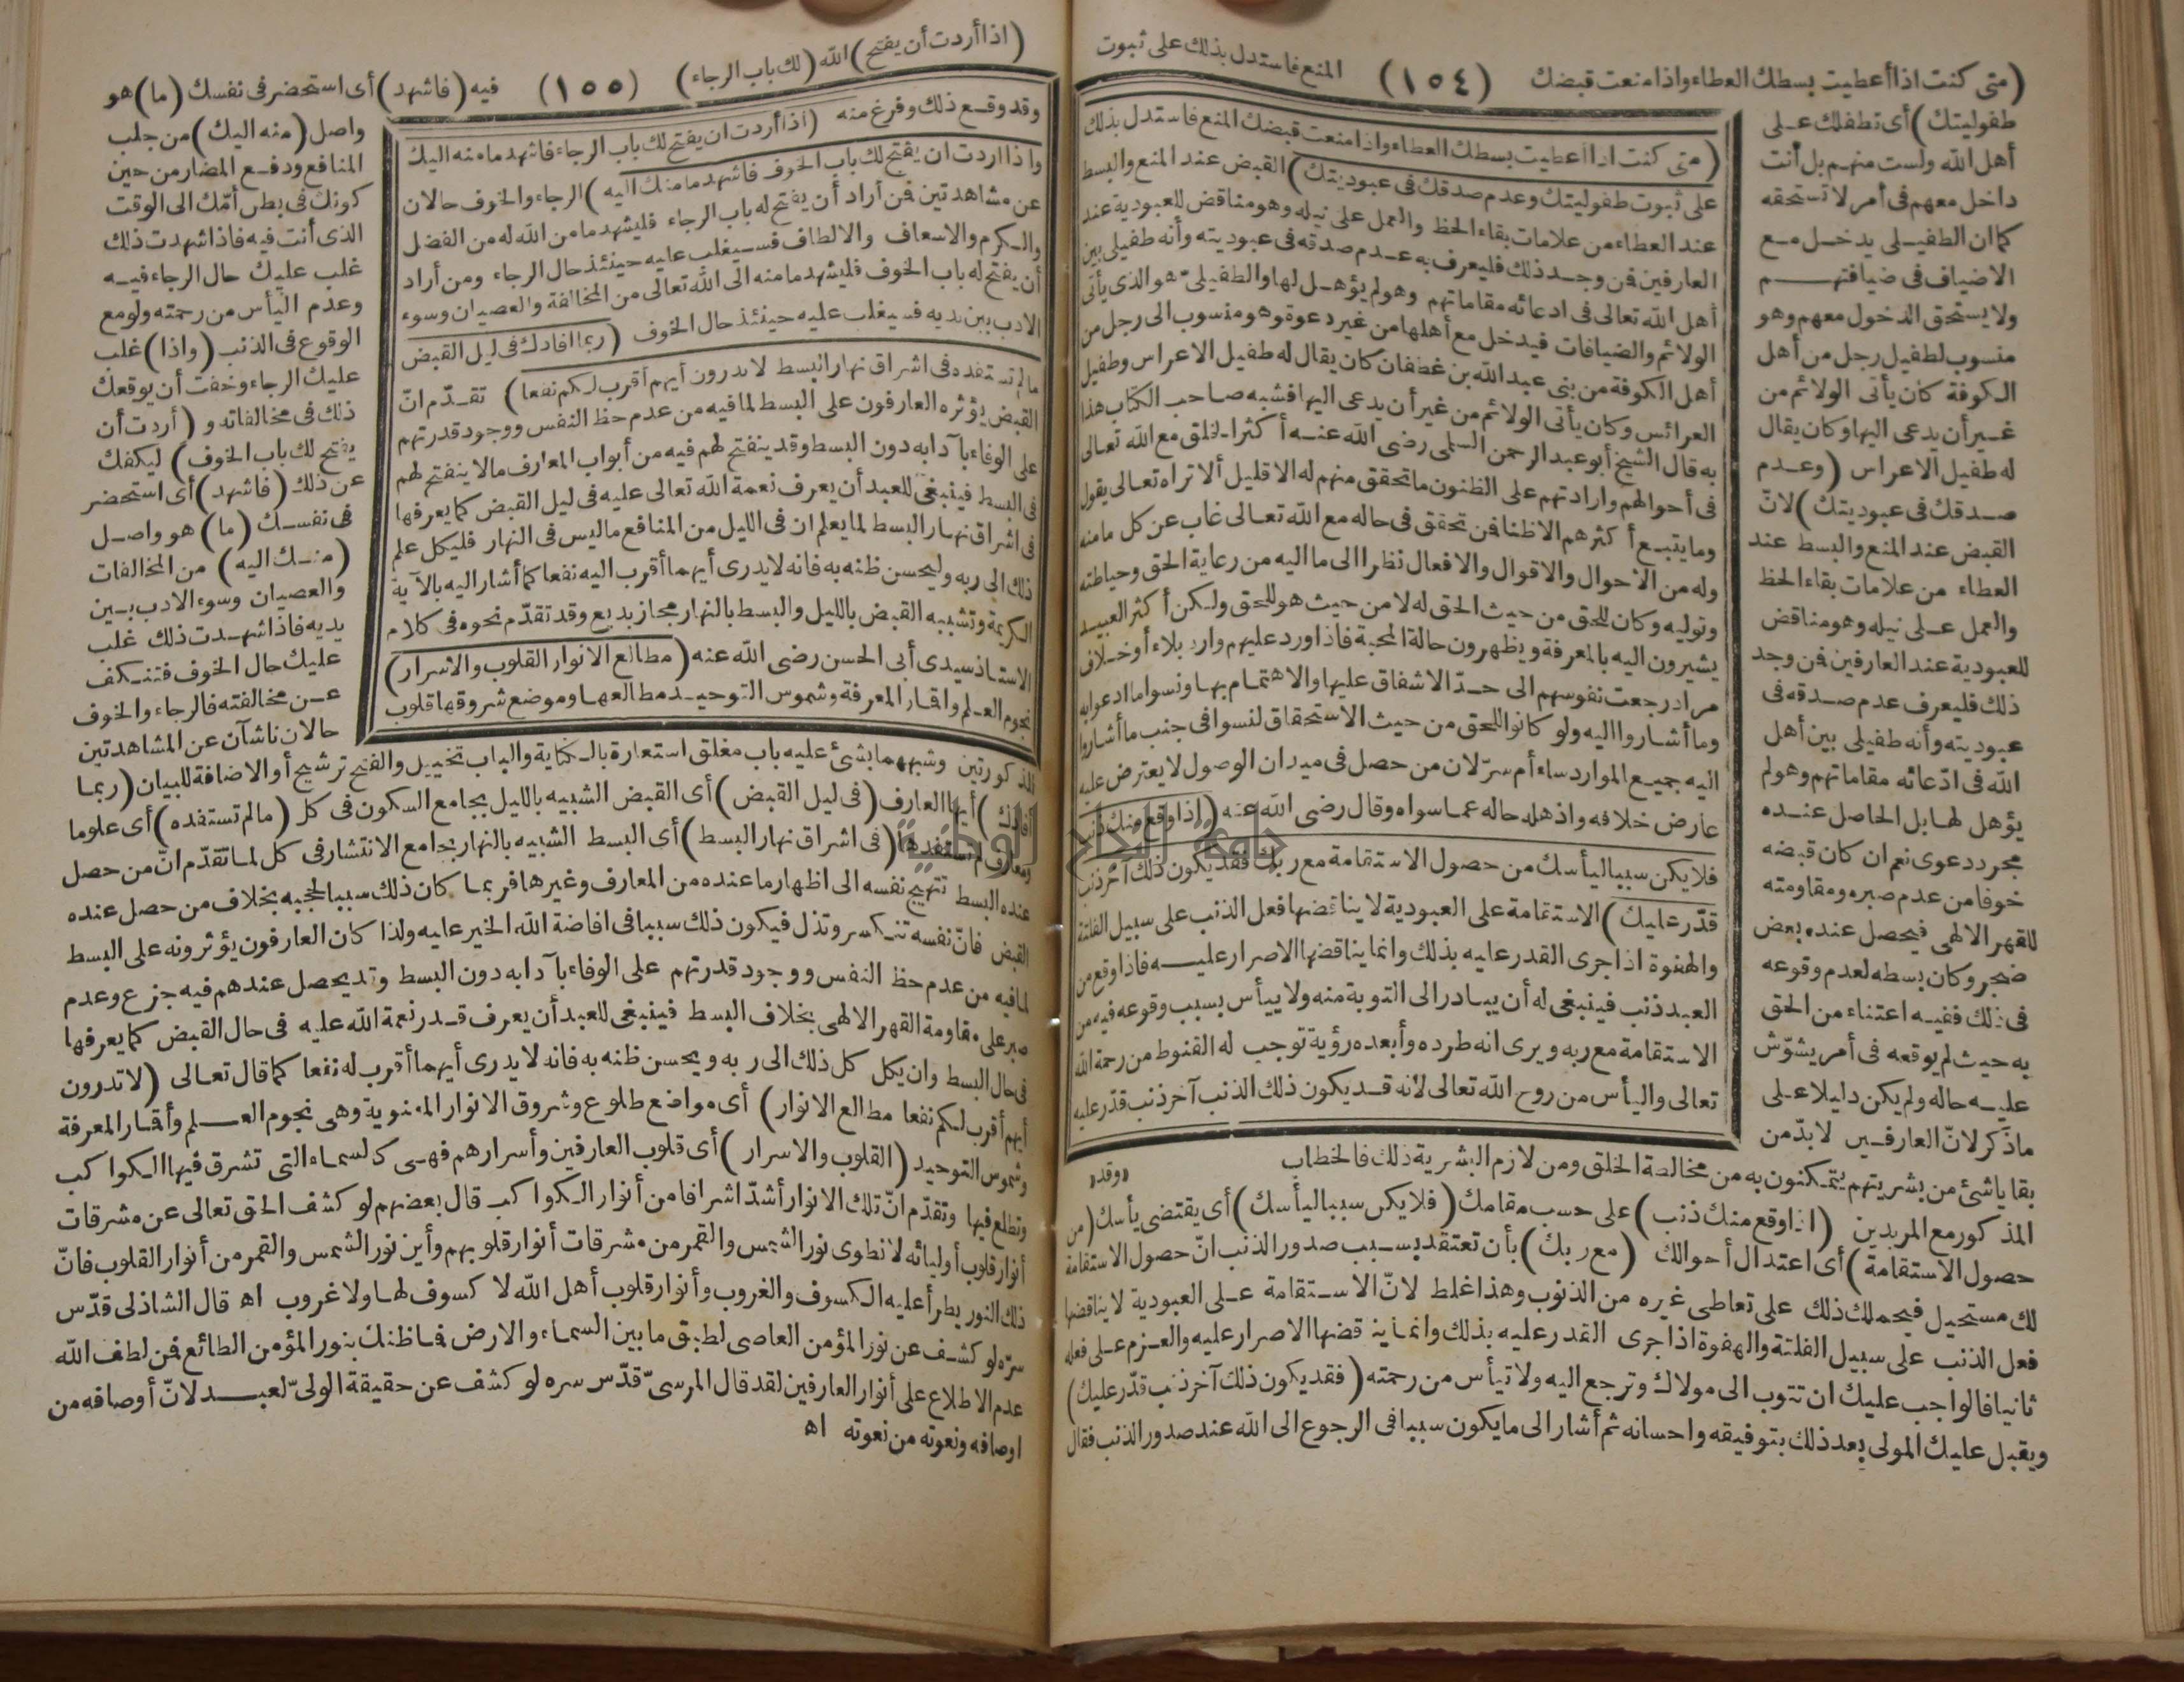 (متى كنت اذا أعطيت بسطك العطاء واذا منعت قبضك (١٥٤) المنع فاستدل بذلك على ثبوت
طفوليتك) أى تطفلك على
أهل الله ولست منهم بل أنت
داخل معهم فى أمر لا تستحقه
كما ان الطفيلى يدخل مع
الاضياف فى ضيافتهم
ولا يستحق الدخول معهم وهو
منسوب لطفيل رجل من أهل
الكوفة كان يأتى الولائم من
غير أن يدعى اليها وكان يقال
له طفيل الاعراس (وعدم
صدقك فى عبوديتك) لانّ
القبض عند المنع والبسط عند
العطاء من علامات بقاء الحظ
والعمل على نيله وهو مناقض
للعبودية عند العارفين فمن وجد
ذلك فليعرف عدم صدقه فى
عبوديته وأنه طفيلى بين أهل
الله فى ادّعائه مقاماتهم وهو لم
يؤهل لها بل الحاصل عنده
مجرد دعوى نعم ان كان قبضه
خوفا من عدم صبره ومقاومته
للقهر الالهى فيحصل عنده بعض
ضجر وكان بسطه لعدم وقوعه
فى ذلك ففيه اعتناء من الحق
به حيث لم يوقعه فى أمر يشوّش
عليه حاله ولم يكن دليلا على
ماذكر لانّ العارفين لا بدّ من
(متى كنت اذا أعطيت بسطك العطاء واذا منعت قبضك المنع فاستدل بذلك
على ثبوت طفوليتك وعدم صدقك فى عبوديتك) القبض عند المنع والبسط
عند العطاء من علامات بقاء الحظ والعمل على نيله وهو مناقض للعبودية عند
العارفين فمن وجد ذلك فليعرف به عدم صدقه فى عبوديته وأنه طفيلى بين
أهل الله تعالى فى ادعائه مقاماتهم وهو لم يؤهل لها والطفيلىّ هو الذى يأتى
الولائم والضيافات فيدخل مع أهلها من غير دعوة وهو منسوب الى رجل من
أهل الكوفة من بنى عبد الله بن غطفان كان يقال له طفيل الاعراس وطفيل
العرائس وكان يأتى الولائم من غير أن يدعى اليها فشبه صاحب الكتاب هذا
به قال الشيخ أبو عبد الرحمن السلمى رضى الله عنه أكثر الخلق مع الله تعالى
فى أحوالهم واراداتهم على الظنون ما تحقق منهم له الا قليل ألا تراه تعالى يقول
وما يتبع أكثرهم الا ظنا فمن تحقق فى حاله مع الله تعالى غاب عن كل ما منه
وله من الاحوال والاقوال والافعال نظرا الى ما اليه من رعاية الحق وحياطته
وتوليه وكان للحق من حيث الحق له لا من حيث هو للحق ولكن أكثر العبيد
يشيرون اليه بالمعرفة ويظهرون حالة المحبة فاذا ورد عليهم وارد بلاء أو خلاف
مراد رجعت نفوسهم الى حدّ الاشفاق عليها والاهتمام بها ونسوا ما ادعوا به
وما أشاروا اليه ولو كانوا للحق من حيث الاستحقاق لنسوا فى جنب ما أشاروا
اليه جميع الموارد ساء أم سرّ لان من حصل فى ميدان الوصول لا يعترض عليه
عارض خلافه واذهله حاله عما سواه وقال رضى الله عنه (اذا وقع منك ذنب
فلا يكن سببا ليأسك من حصول الاستقامة مع ربك فقد يكون ذلك آخر ذنب
قدّر عليك) الاستقامة على العبودية لا يناقضها فعل الذنب على سبيل الفلتة
والهفوة اذا جرى القدر عليه بذلك وانما يناقضها الاصرار عليه فاذا وقع من
العبد ذنب فينبغى له أن يبادر الى التوبة منه ولا ييأس بسبب وقوعه فيه من
الاستقامة مع ربه ويرى انه طرده وأبعده رؤية توجب له القنوط من رحمة الله
تعالى واليأس من روح الله تعالى لأنه قد يكون ذلك الذنب آخر ذنب قدّر عليه
«وقد»
بقايا شئ من بشريتهم يتمكنون به من مخالطة الخلق ومن لازم البشرية ذلك فالخطاب
المذكور مع المريدين (اذا وقع منك ذنب) على حسب مقامك (فلا يكن سببا ليأسك) أى يقتضى يأسك (من
حصول الاستقامة) أى اعتدال أحوالك (مع ربك) بأن تعتقد بسبب صدور الذنب انّ حصول الاستقامة
لك مستحيل فيحملك ذلك على تعاطى غيره من الذنوب وهذا غلط لانّ الاستقامة على العبودية لا يناقضها
فعل الذنب على سبيل الفلتة والهفوة اذا جرى القدر عليه بذلك وانما يناقضها الاصرار عليه والعزم على فعله
ثانيا فالواجب عليك ان تتوب الى مولاك وترجع اليه ولا تيأس من رحمته (فقد يكون ذلك آخر ذنب قدّر عليك)
ويقبل عليك المولى بعد ذلك بتوفيقه واحسانه ثم أشار الى ما يكون سببا فى الرجوع الى الله عند صدور الذنب فقال
(اذا أردت أن يفتح) الله (لك باب الرجاء) (١٥٥) فيه (فاشهد) أى استحضر فى نفسك (ما) هو
وقد وقع ذلك وفرغ منه (اذا أردت ان يفتح لك باب الرجاء فاشهد ما منه اليك
واذا اردت ان يفتح لك باب الخوف فاشهد ما منك اليه) الرجاء والخوف حالان
عن مشاهدتين فمن أراد أن يفتح له باب الرجاء فليشهد ما من الله له من الفضل
والكرم والاسعاف والالطاف فسيغلب عليه حينئذ حال الرجاء ومن أراد
أن يفتح له باب الخوف فليشهد ما منه الى الله تعالى من المخالفة والعصيان وسوء
الادب بين يديه فسيغلب عليه حينئذ حال الخوف (ربما افادك فى ليل القبض
ما لم تستفده فى اشراق نهار البسط لا تدرون أيهم أقرب لكم نفعا) تقدّم انّ
القبض يؤثره العارفون على البسط لما فيه من عدم حظ النفس ووجود قدرتهم
على الوفاء بآدابه دون البسط وقد ينفتح لهم فيه من أبواب المعارف ما لا ينفتح لهم
فى البسط فينبغى للعبد أن يعرف نعمة الله تعالى عليه فى ليل القبض كما يعرفها
فى اشراق نهار البسط لما يعلم ان فى الليل من المنافع ما ليس فى النهار فليكل علم
ذلك الى ربه وليحسن ظنه به فانه لا يدرى أيهما أقرب اليه نفعا كما أشار اليه بالآية
الكريمة وتشبيه القبض بالليل والبسط بالنهار مجاز بديع وقد تقدّم نحوه فى كلام
الاستاذ سيدى أبى الحسن رضى الله عنه (مطالع الانوار القلوب والاسرار)
نجوم العلم واقمار المعرفة وشموس التوحيد مطالعها وموضع شروقها قلوب
واصل (منه اليك) من جلب
المنافع ودفع المضار من حين
كونك فى بطن أمّك الى الوقت
الذى أنت فيه فاذا شهدت ذلك
غلب عليك حال الرجاء فيه
وعدم اليأس من رحمته ولو مع
الوقوع فى الذنب (واذا) غلب
عليك الرجاء وخفت أن يوقعك
ذلك فى مخالفاته و (أردت أن
يفتح لك باب الخوف) ليكفك
عن ذلك (فاشهد) أى استحضر
فى نفسك (ما) هو واصل
(منك اليه) من المخالفات
والعصيان وسوء الادب بين
يديه فاذا شهدت ذلك غلب
عليك حال الخوف فتنكف
عن مخالفته فالرجاء والخوف
حالان ناشآن عن المشاهدتين
المذكورتين وشبههما بشئ عليه باب مغلق استعارة بالكناية والباب تخييل والفتح ترشيح أو الاضافة للبيان (ربما
أفادك) أيها العارف (فى ليل القبض) أى القبض الشبيه بالليل بجامع السكون فى كل (ما لم تستفده) أى علوما
ومعارف لم تستفدها (فى اشراق نهار البسط) أى البسط الشبيه بالنهار بجامع الانتشار فى كل لما تقدّم انّ من حصل
عنده البسط تتهيج نفسه الى اظهار ما عنده من المعارف وغيرها فربما كان ذلك سببا لحجبه بخلاف من حصل عنده
القبض فانّ نفسه تنكسر وتذل فيكون ذلك سببا فى افاضة الله الخير عليه ولذا كان العارفون يؤثرونه على البسط
لما فيه من عدم حظ النفس ووجود قدرتهم على الوفاء بآدابه دون البسط وقد يحصل عندهم فيه جزع وعدم
صبر على مقاومة القهر الالهى بخلاف البسط فينبغى للعبد أن يعرف قدر نعمة الله عليه فى حال القبض كما يعرفها
فى حال البسط وان يكل كل ذلك الى ربه ويحسن ظنه به فانه لا يدرى أيهما أقرب له نفعا كما قال تعالى (لا تدرون
أيهم أقرب لكم نفعا مطالع الانوار) أى مواضع طلوع وشروق الانوار المعنوية وهى نجوم العلم وأقمار المعرفة
وشموس التوحيد (القلوب والاسرار) أى قلوب العارفين وأسرارهم فهى كالسماء التى تشرق فيها الكواكب
وتطلع فيها وتقدّم انّ تلك الانوار أشدّ اشراقا من أنوار الكواكب قال بعضهم لو كشف الحق تعالى عن مشرقات
أنوار قلوب أوليائه لانطوى نور الشمس والقمر من مشرقات أنوار قلوبهم وأين نور الشمس والقمر من أنوار القلوب فانّ
ذلك النور يطرأ عليه الكسوف والغروب وأنوار قلوب أهل الله لا كسوف لها ولا غروب اه قال الشاذلى قدّس
سرّه لو كشف عن نور المؤمن العاصى لطبق ما بين السماء والارض فما ظنك بنور المؤمن الطائع فمن لطف الله
عدم الاطلاع على أنوار العارفين لقد قال المرسىّ قدّس سره لو كشف عن حقيقة الولىّ لعبد لانّ أوصافه من
اوصافه ونعوته من نعوته اه
جامعة النجاح الوطنية